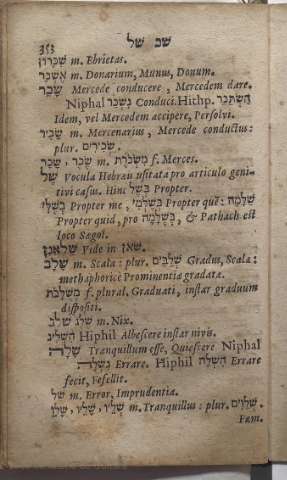 353 שכ של
שִׁכָּרוֹן m. Ebrietas.
אֶשְׁכָּר m. Donarium, Munus, Donum.
שָׂכַר Mercede conducere, Mercedem dare.
Niphal נִשְׂכַּר Conduci. Hithp. הִשְׂתַּכֵּר
Idem, vel Mercedem accipere, Persolvi.
שָׂכִיר m. Mercenarius, Mercede conductus:
plur. שְׂכִירִים.
שָׂכָר, שֶׂכֶר m. מַשְׂכֹּרֶת f. Merces.
שֶׁל Vocula Hebræis usitata pro articulo geni-
tivi casus. Hinc בְּשֶׁל Propter.
בְּשֶׁלִּי Propter me, בְּשֶׁלְּמִי Propter què: שַׁלָּמָה
Propter quid, pro בְּשֶׁלְּמָה, & Pathach est
loco Sægol.
שלאנן Vide in שאן.
שָׁלָב m. Scala: plur. שְׁלַבִּים Gradus, Scala:
metaphoricè Prominentia gradata.
מְשֻׁלָּבֹת f. plural. Graduati, instar graduum
dispositi.
שלג שֶׁלֶג m. Nix.
הִשְׁלִיג Hiphil Albescere instar nivis.
שָׁלָה Tranquillum esse, Quiescere Niphal
נִשְׁלָה Errare. Hiphil הִשְׁלָה Errare
fecit, Fefellit.
שַׁל m. Error, Imprudentia.
שָׁלֵו, שָׁלֵיו, שָׁלֵיו m. Tranquillus: plur. שְׁלֵוִים.
Fœm.